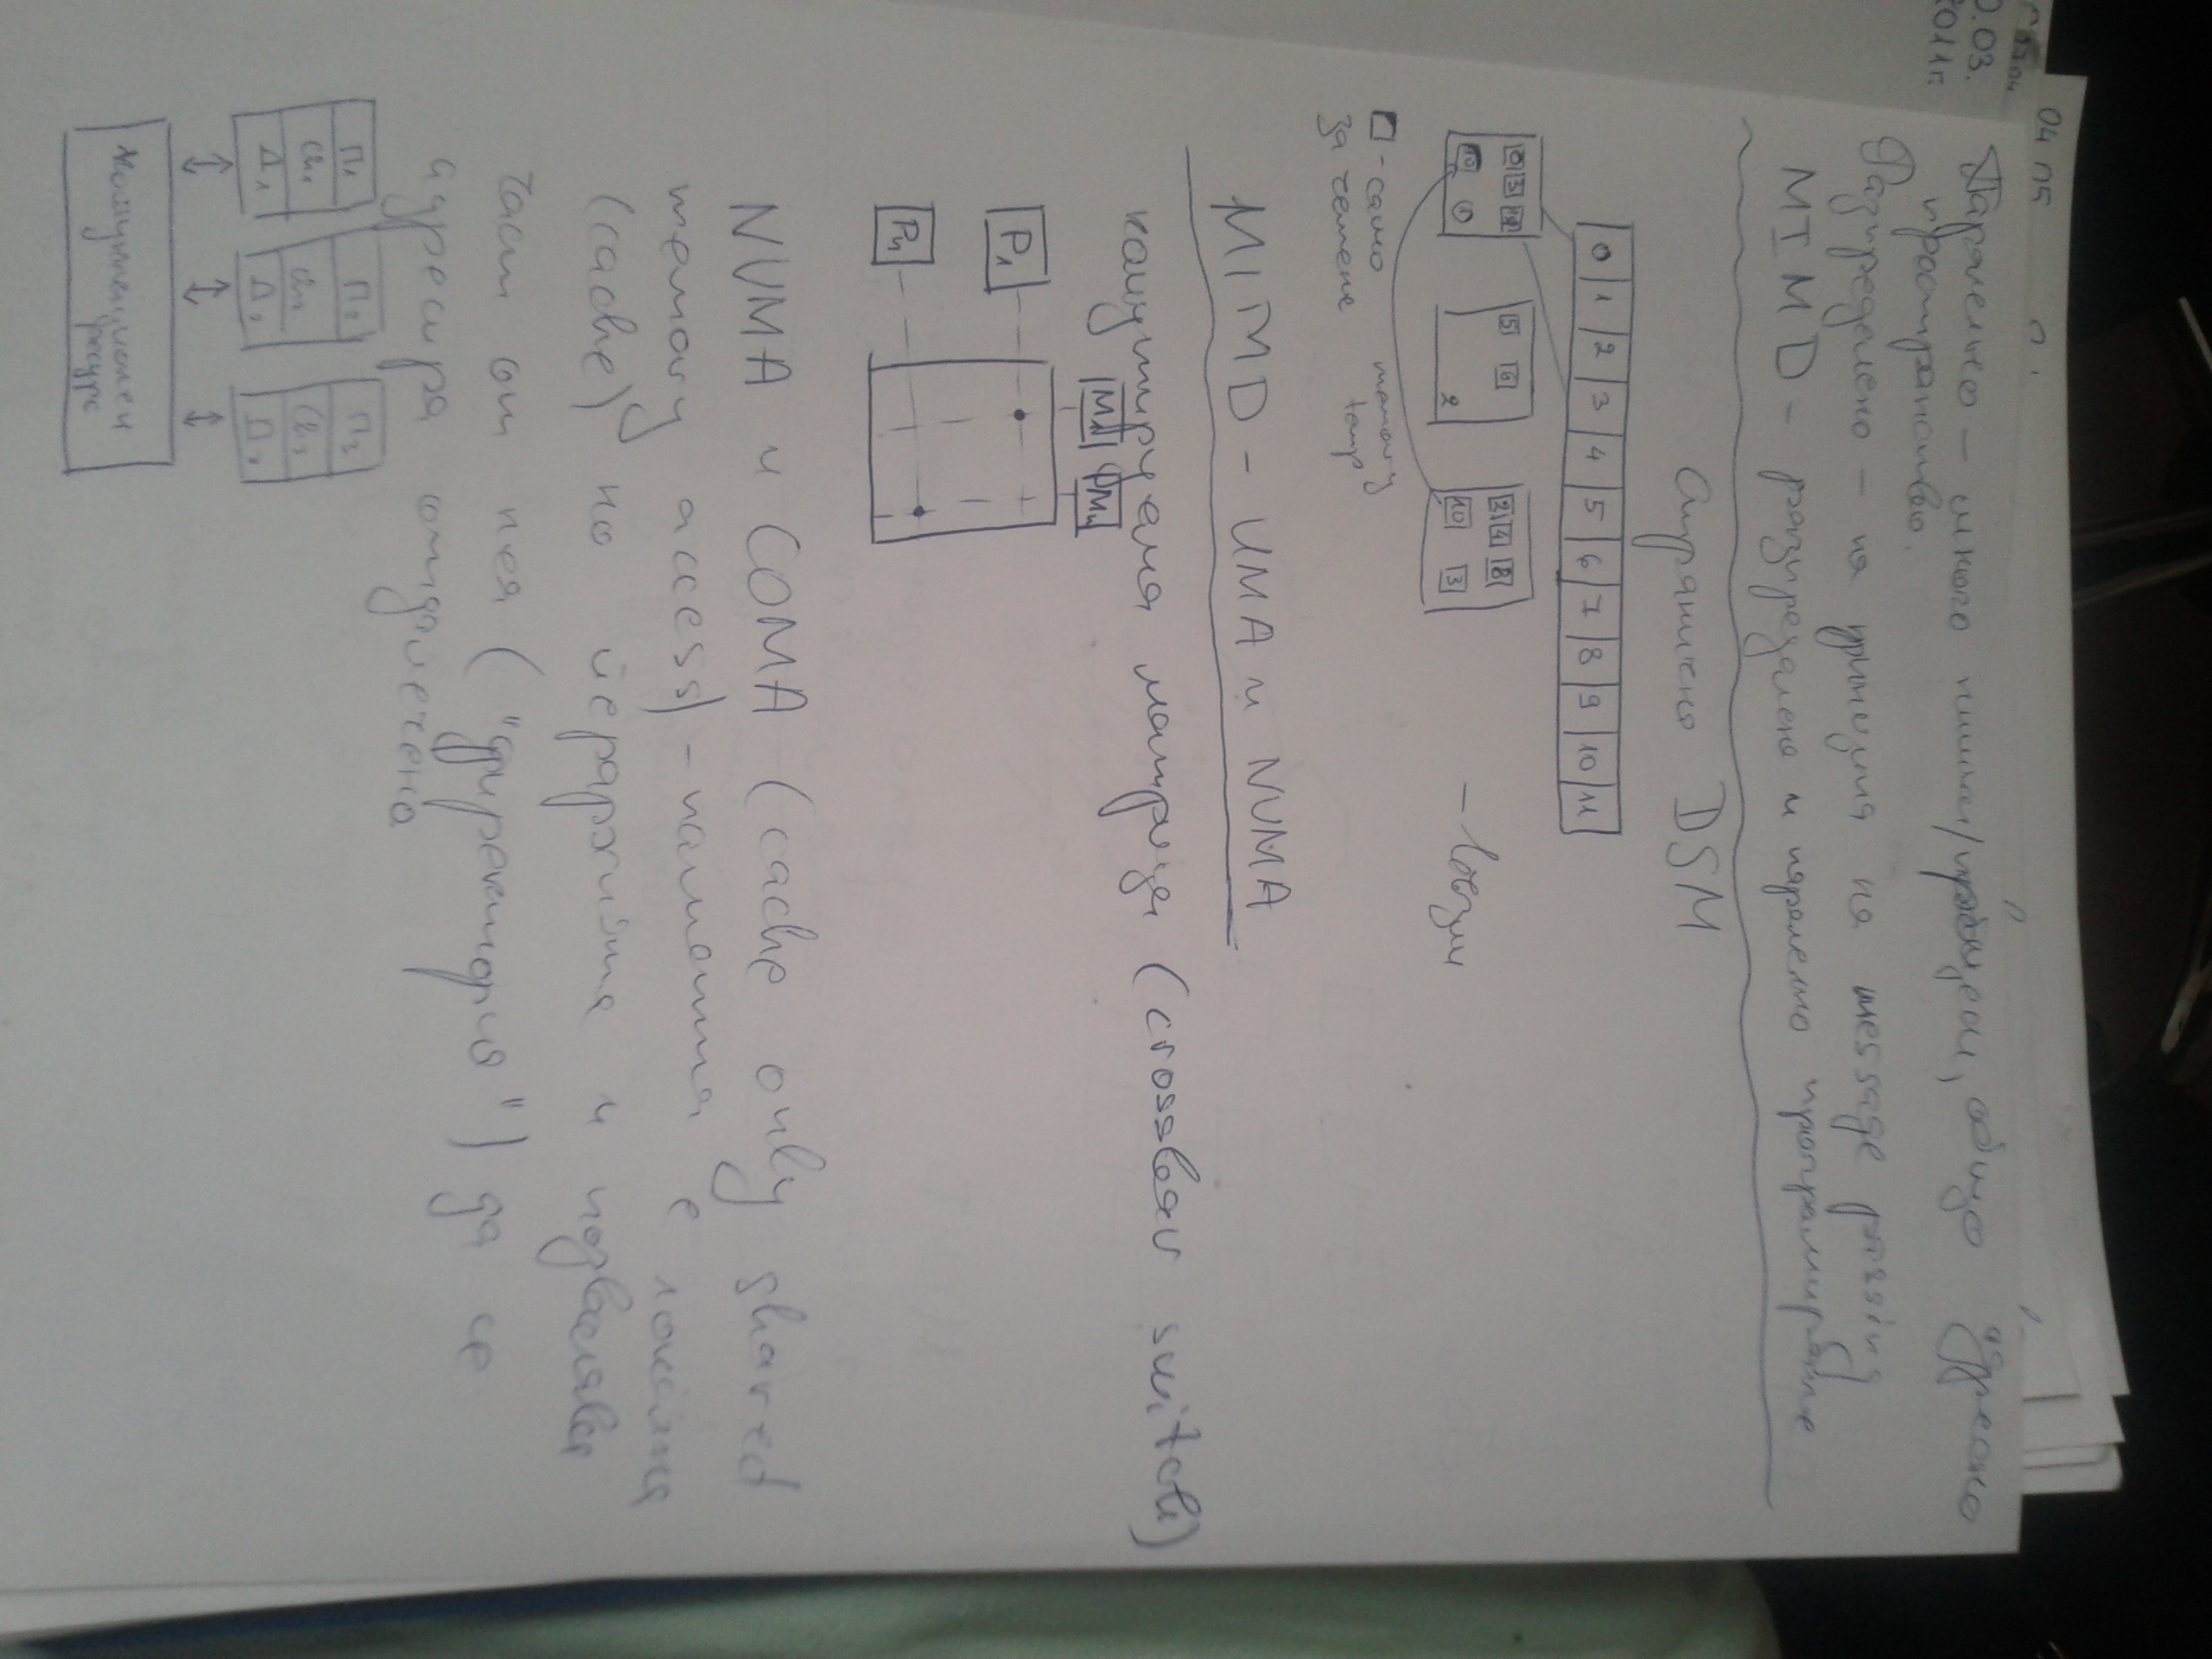 04 ПБ
0.03.
2011г.
Паралелно – много нишки/процеси, общо адресно
пространство.
Разпределено – на принципа на message passing
MIMD – разпределено и паралелно програмиране
Странично DSM
0 1 2 3 4 5 6 7 8 9 10 11
0 3
10 1
5 6
2
2 4 8
10 3
– възли
– само
за четене
memory
MIMD – UMA и NUMA
комутируема матрица (crossbar switch)
M1 PMn
P1
Pn
NUMA и COMA (cache only shared
memory access) – паметта е локална
(cache) но йерархията и позволява
част от нея ("директория") да се
адресира отдалечено
П1 П2 П3
Д1 Д2
Комуникационен
ресурс